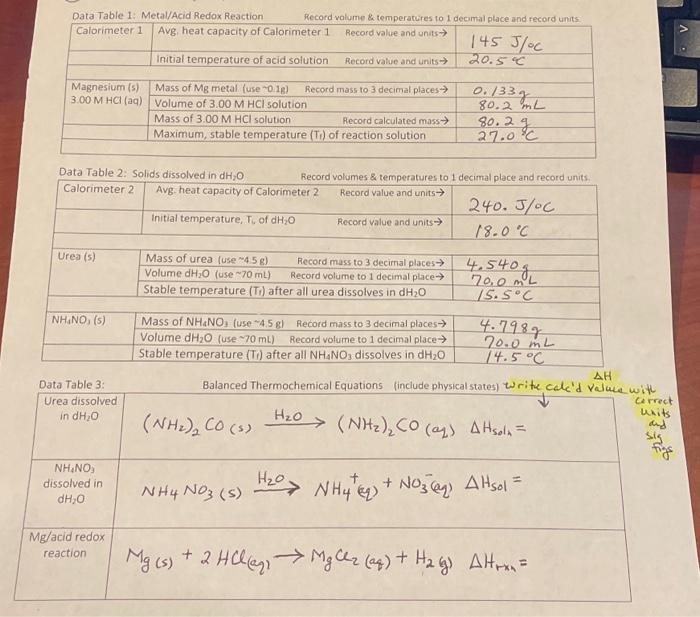 Data Table 1: Metal/Acid Redox Reaction Record volume & temperatures to 1 decimal place and record units
Calorimeter 1 Avg. heat capacity of Calorimeter 1 Record value and units→ 145 J/°C
Initial temperature of acid solution Record value and units→ 20.5 °C
Magnesium (s) Mass of Mg metal (use ~0.1g) Record mass to 3 decimal places→ 0.133 g
3.00 M HCl (aq) Volume of 3.00 M HCl solution 80.2 mL
Mass of 3.00 M HCl solution Record calculated mass→ 80.2 g
Maximum, stable temperature (Tf) of reaction solution 27.0 °C
Data Table 2: Solids dissolved in dH₂O Record volumes & temperatures to 1 decimal place and record units.
Calorimeter 2 Avg. heat capacity of Calorimeter 2 Record value and units→ 240. J/°C
Initial temperature, Ti, of dH₂O Record value and units→ 18.0 °C
Urea (s) Mass of urea (use ~4.5 g) Record mass to 3 decimal places→ 4.540 g
Volume dH₂O (use ~70 mL) Record volume to 1 decimal place→ 70.0 mL
Stable temperature (Tf) after all urea dissolves in dH₂O 15.5 °C
NH₄NO₃ (s) Mass of NH₄NO₃ (use ~4.5 g) Record mass to 3 decimal places→ 4.798 g
Volume dH₂O (use ~70 mL) Record volume to 1 decimal place→ 70.0 mL
Stable temperature (Tf) after all NH₄NO₃ dissolves in dH₂O 14.5 °C
Data Table 3: Balanced Thermochemical Equations (include physical states) Write calc'd ΔH values with correct units and sig figs
Urea dissolved
in dH₂O
(NH₂)₂CO (s) H₂O→ (NH₂)₂CO (aq) ΔHsoln =
NH₄NO₃
dissolved in
dH₂O
NH4 NO3 (s) H₂O→ NH₄⁺(aq) + NO₃⁻(aq) ΔHsol =
Mg/acid redox
reaction
Mg (s) + 2 HCl (aq) → MgCl₂ (aq) + H₂ (g) ΔHrxn =